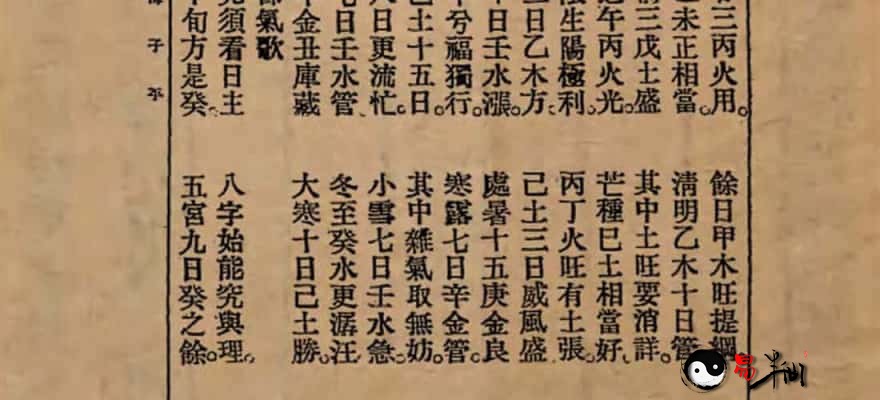 三丙火用。 餘日甲木旺提綱
未正相當。 清明乙木十日管
三戊土盛 其中土旺要消詳。
午丙火光。 芒種巳土相當好。
生陽極利 丙丁火旺有土張。
日乙木方。 己土三日威風盛
日壬水漲。 處暑十五庚金良
兮福獨行。 寒露七日辛金管。
土十五日。 其中雜氣取無妨。
日更流忙。 小雪七日壬水急。
日壬水管 冬至癸水更潺汪
金丑庫藏 大寒十日己土勝。
氣歌
須看日主 八字始能究與理。
旬方是癸。 五宮九日癸之餘。
子平